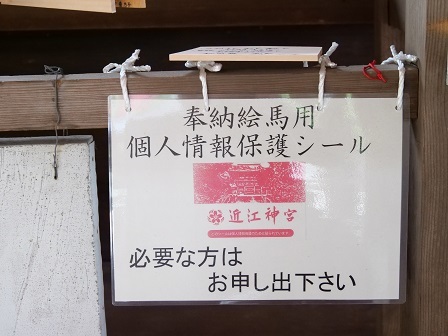 奉納絵馬用
個人情報保護シール
近江神宮
必要な方は
お申し出下さい